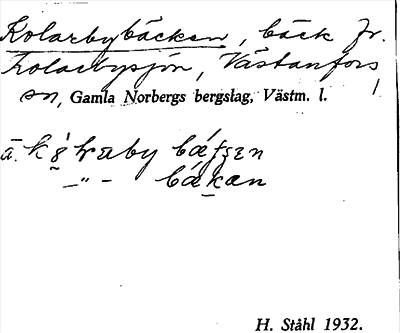 Kolarbybäcken, bäck fr.
Kolarbysjön, Västanfors
sn, Gamla Norbergs bergslag, Västm. l.
bäcken
—"— bäkan
H. Ståhl 1932.